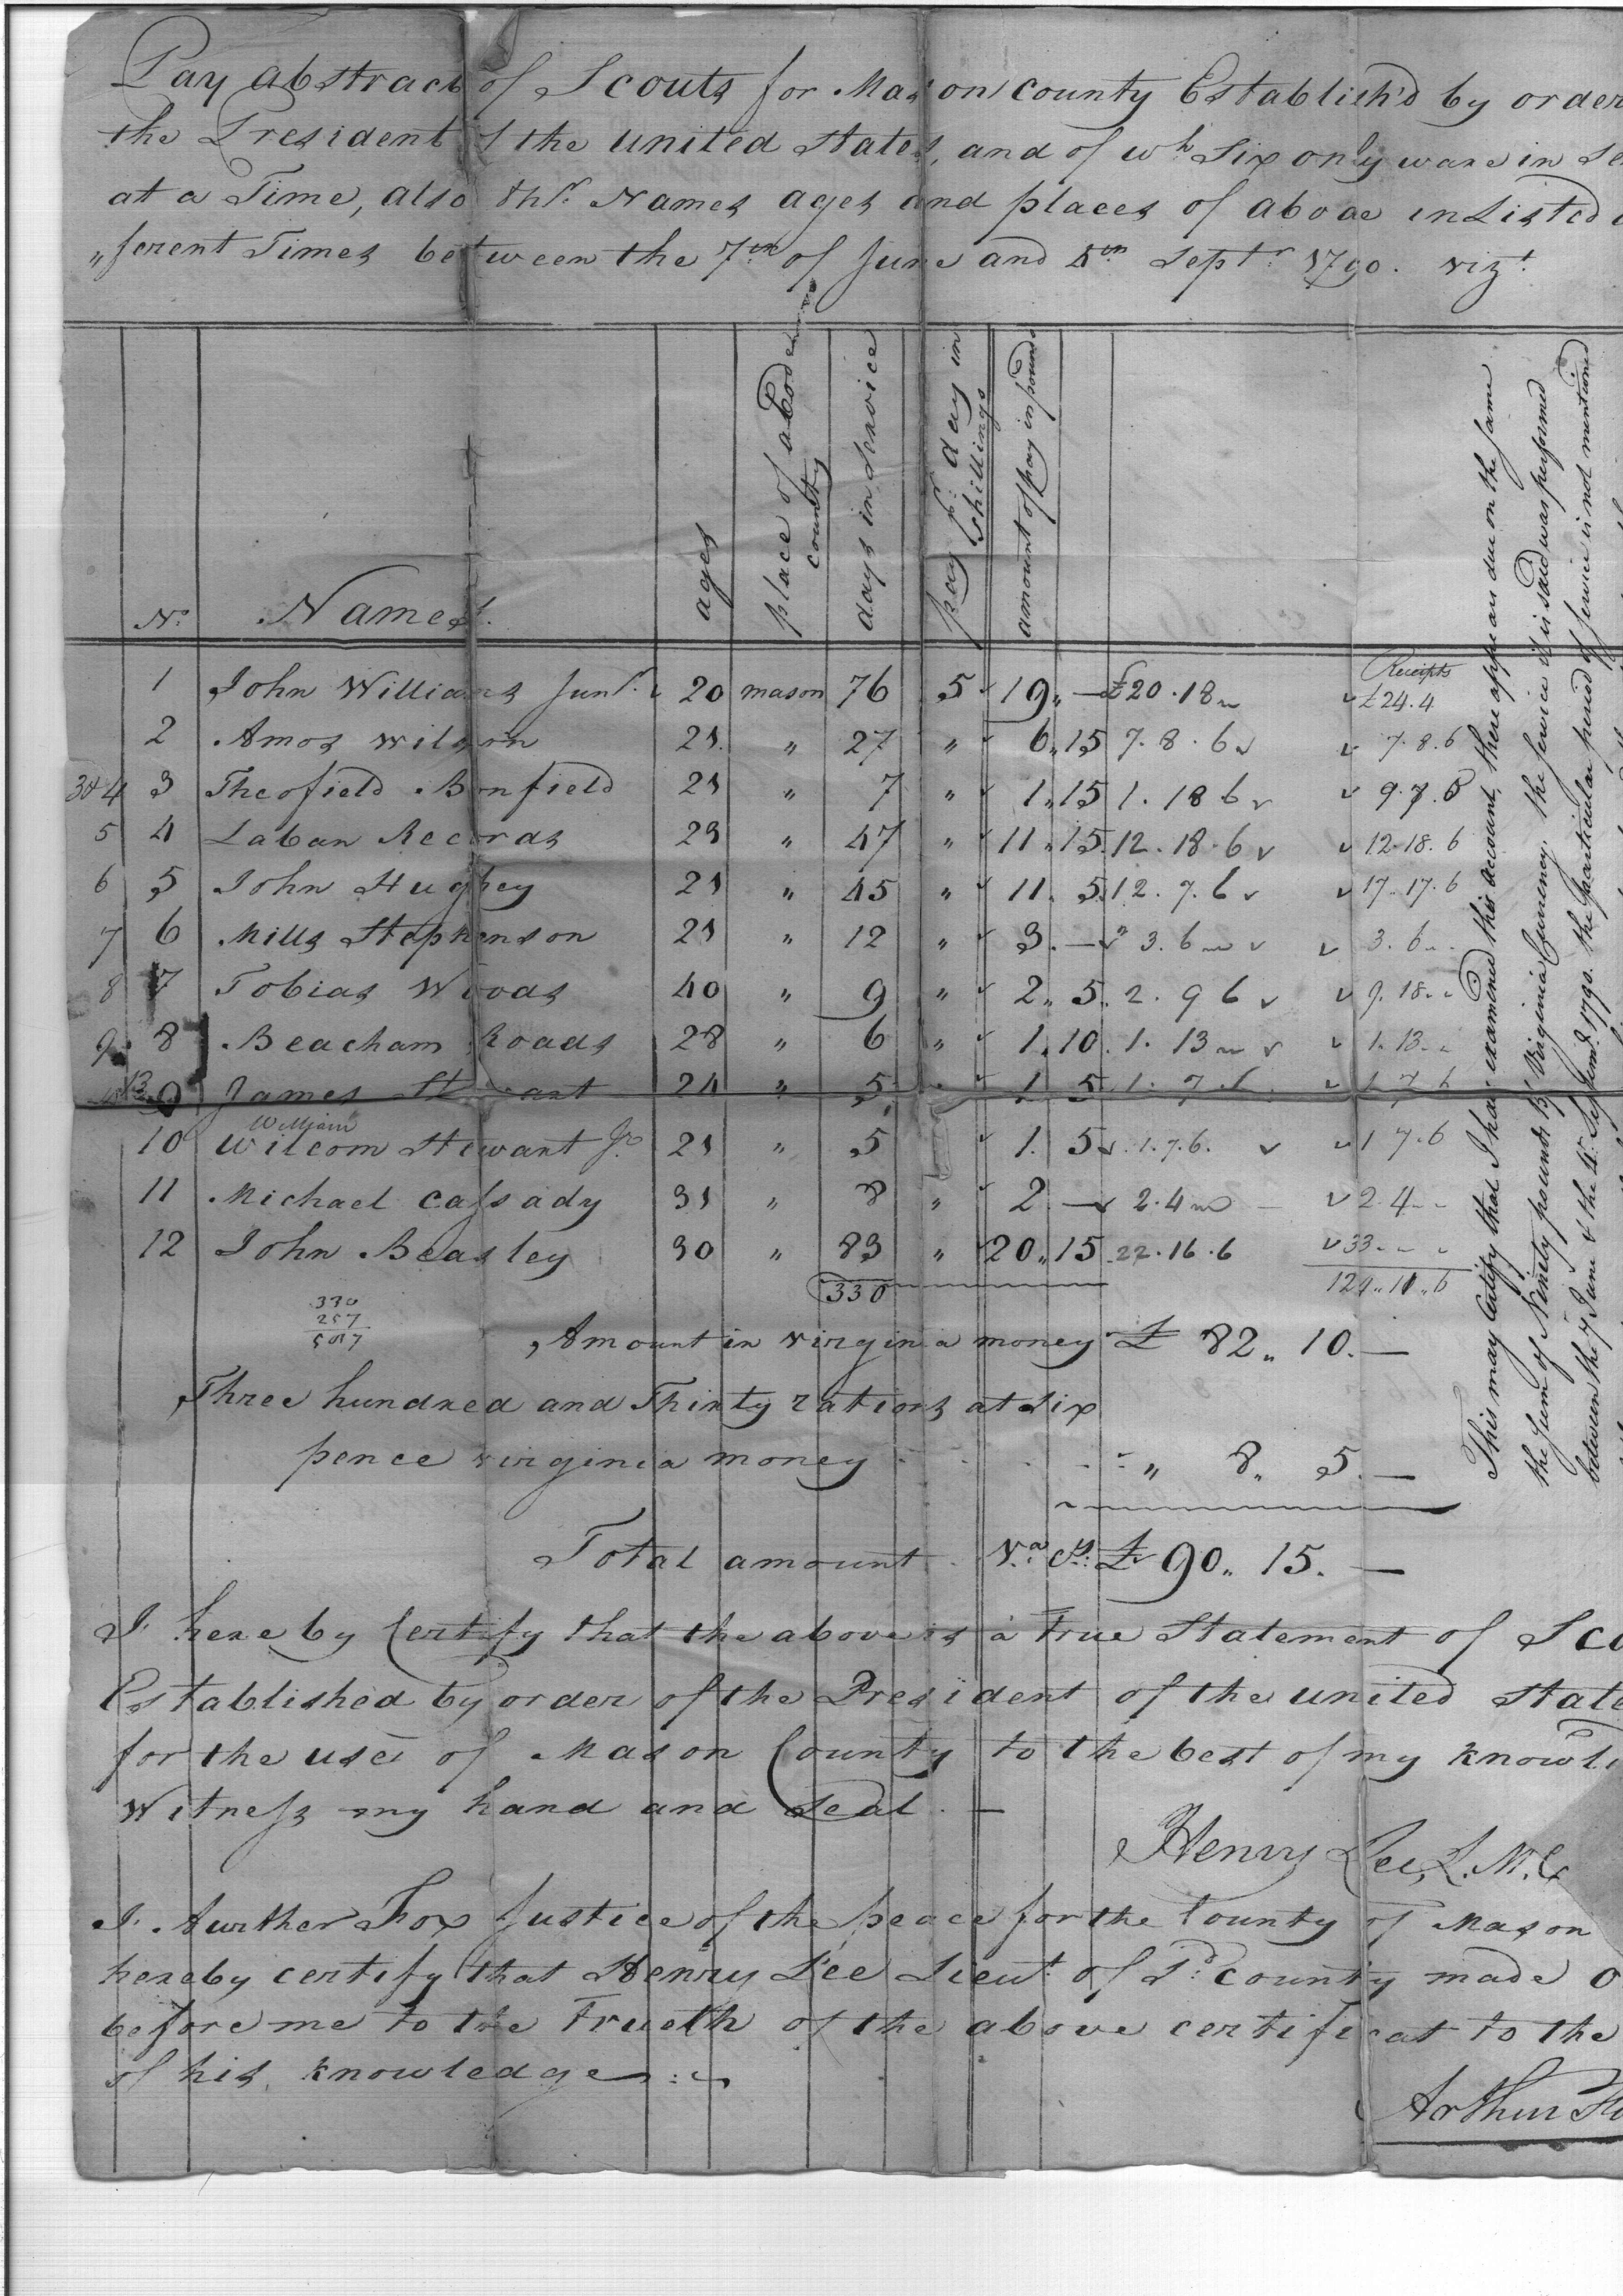 Pay abstract of Scouts for Mason County Establish'd by order
the President of the united States, and of wh Six only ware in Se
at a Time, also thr Names ages and places of aboae inListed
"ferent Times between the 7th of June and 4th Septr 1790. vizt
No Names. ages place of abode county days in Service pay pr day in shillings amount of pay in pounds
Receipts
1 John Williams Junr 20 mason 76 5 19 " — £20.18 £24.4
2 Amos Wilson 21 " 27 " 6 " 15 7.8.6 7.8.6
3&4 3 Theofield Bonfield 21 " 7 " 1 " 15 1.18 6 9.7.6
5 4 Laban Records 23 " 47 " 11 " 15 12.18.6 12.18.6
6 5 John Hughey 21 " 45 " 11. 5 12.7.6 17.17.6
7 6 Mills Stephenson 21 " 12 " 3. — " 3.6 3.6
8 7 Tobias Woods 40 " 9 " 2 " 5. 2. 9 6 9.18
9 8 Beacham Roads 28 " 6 " 1. 10. 1. 13 1.13
9 James Stewart 24 " 5 1 5 1.7.6 1 7 6
William
10 Wilcom Stewart Jr 21 " 5 1. 5 1.7.6. 1 7.6
11 Michael Cassady 31 " 8 " 2 — 2.4 2.4
12 John Beasley 30 " 83 " 20 " 15 22.16.6 33
330 124 " 11 " 6
330
257
587
Amount in virginia money £ 82 " 10. —
Three hundred and Thirty rations at Six
pence virginia money " 8 " 5. —
Total amount Va Cy: £ 90 " 15. —
I hereby Certify that the above is a True Statement of Sco
Established by order of the President of the united State
for the use of Mason County to the best of my knowl
Witness my hand and Seal. —
Henry Lee, L.M.C
I. Aurther Fox Justice of the peace for the County of Mason
hereby certify that Henry Lee Lieut of Sd County made o
before me to the Trueth of the above certificat to the
of his knowledge
Arthur Fo
This may Certify that I have examined this account, there appears due on the same
the Sum of Ninety pounds 15/ Virginia Currency. the Service it is said was performed
between the 7 June & the 4 Septemr 1790. the particular period of service is not mentioned